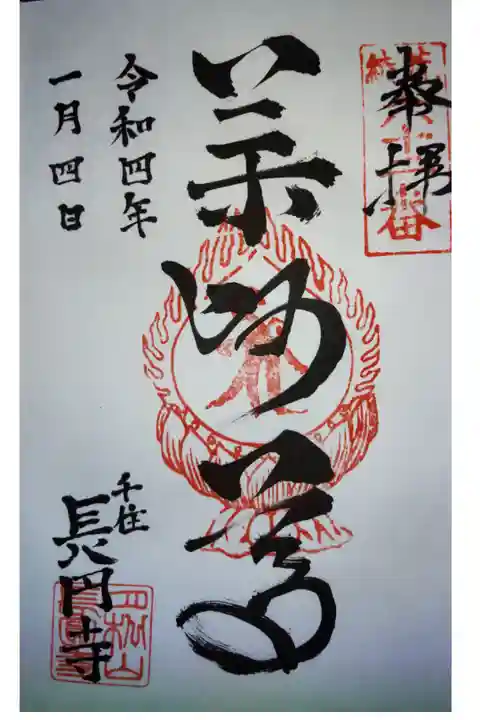 奉拝
薬師尊
令和四年
一月四日
千住
長円寺